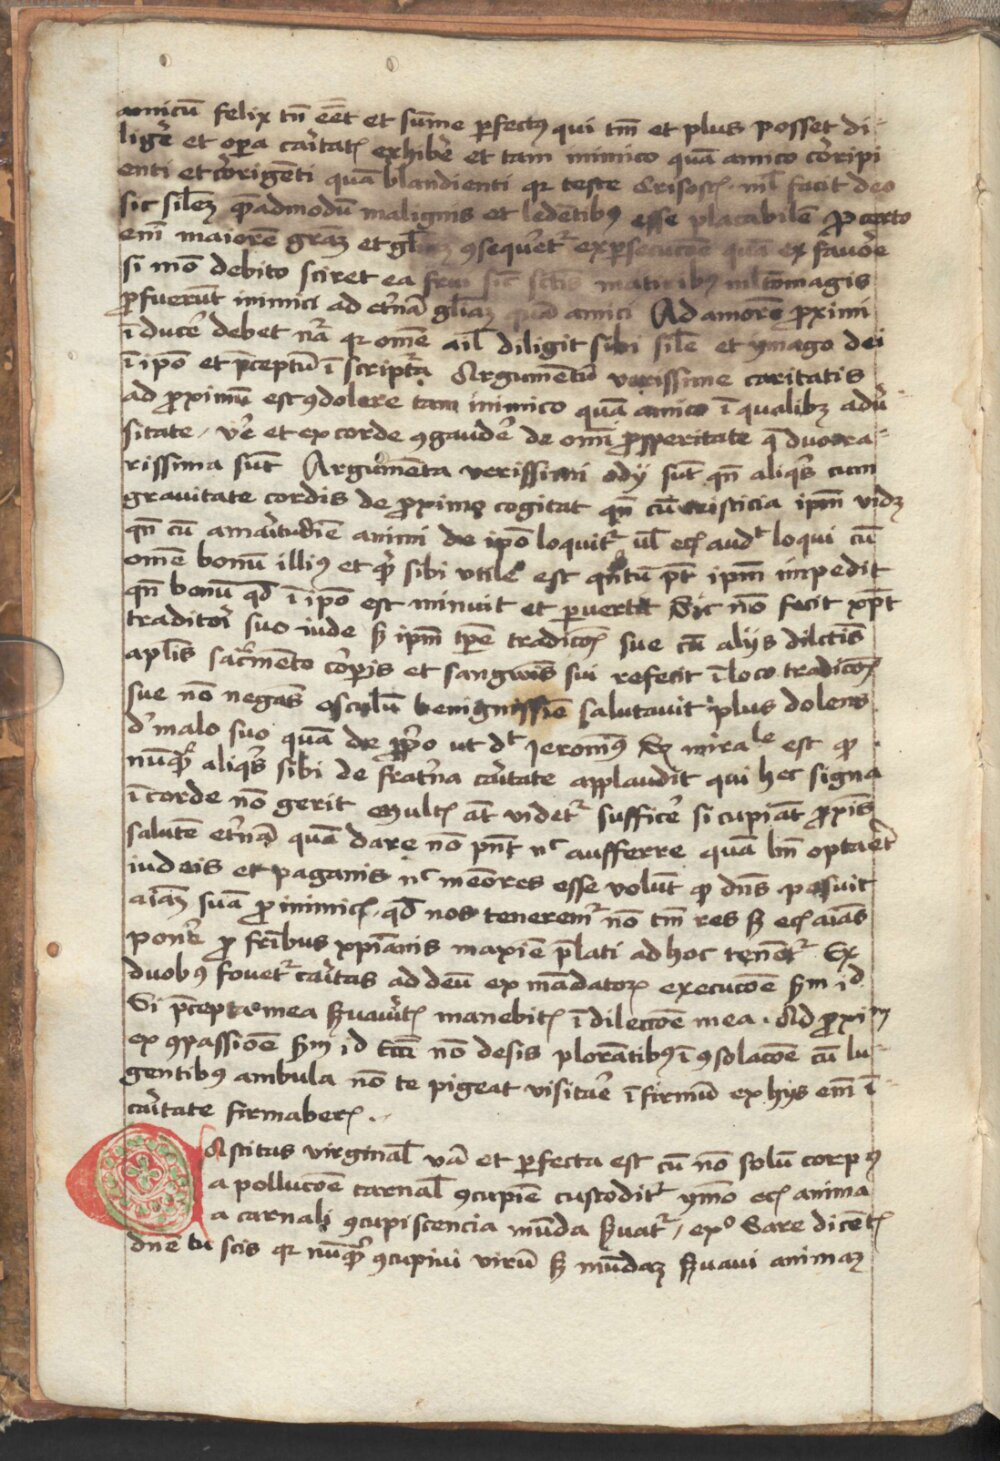 amicū felix tn̄ eēt et sūme ꝑfectꝰ qui tm̄ et plus posset di-
ligẽ et oꝑa caritatꝭ exhibẽ et tam inimico quā amico corripi
enti et corrigēti quā blandienti qꝛ teste Crisostꝭ nil̄ facit deo
sic sil̄eꝫ q̄admodū malignis et ledētibꝰ esse placabilē ꝓ certo
em̄ maiorē graꝫ et gl̄iaꝫ ꝯsequet᷑ ex ꝑsecucōe quā ex favore
si mō debito sciret ea frui sic sctīs matiribꝰ ml̄tomagis
ꝓfuerūt inimici ad et̓nā gl̄iaꝫ quā amici Ad amorē ꝓximi
īducẽ debet nr̄a qꝛ om̄e ail̄ diligit sibi sil̄e et ymago dei
ī ipō et p̄ceptū ī sc̓ptura Argumētū verissime caritatis
ad ꝓximū est ꝯdolere tam inimico quā amico ī qualibꝫ adũ
sitate / ve᷑ et ex corde ꝯgaudẽ de om̄i ꝓsperitate q̄ duo ra-
rissima sūt Argumēta verissimi odij sūt qn̄ aliqͥs cum
gravitate cordis de ꝓximo cogitat qn̄ cū tristicia ipm̄ videꝫ
qn̄ cū amaritudīe animi de ipō loquit᷑ ul̄ ecꝭ audᵗ loqui cū
om̄e bonū illiꝰ et qͥ sibi utile est qn̄tū pt̄ ipm̄ impedit
qn̄ bonū qd̄ ī ipō est minuit et ꝑvertit Sic nō fecit xp̄c
traditori suo iude sꝫ ipm̄ tp̄e tradicōꝭ sue cū aliis dilctīs
apl̄is sac̓mēto corꝑis et sangwīs sui refecit ī loco tradicōꝭ
sue nō negās osculū benignissīe salutavit plus dolens
d᷑ malo suo quā de ꝓprio ut dᵗ Jeronimꝰ Sꝫ miraˡᵉ est qꝫ
nūqͣꝫ aliqͥs sibi de frat̓na caritate applaudit qui hec signa
ī corde nō gerit Multꝭ āt videt᷑ sufficẽ si cupiāt ꝓxīs
salutē et̓nā quā dare nō pn̄t nᶜ aufferre quā bn̄ optaēt
iudeis et paganis nᶜ meōres esse volūt qꝫ dn̄s posuit
aīaꝫ suā ꝓ inimicꝭ qd̄ nos tenerem᷑ nō tm̄ res sꝫ ecꝭ aīas
ponẽ ꝓ fr̄ibus xp̄ianis maxīe p̄lati ad hoc tenēt᷑ Ex
duobꝰ fovet᷑ caritas ad deū ex mādatoꝝ execucōe sm̄ id
Si p̄cepta mea s̓vav̓itꝭ manebitꝭ ī dileccōe mea . Ad ꝓxiᵐ
ex ꝯpassiōe sm̄ id Ecc̄i nō desis plorātibꝰ ī ꝯsolacōe cū lu-
gentibꝰ ambula nō te pigeat visitaẽ īfirmū ex hijs em̄ ī
caritate firmaberꝭ .
Castitas virginal̄ va᷑ et ꝑfecta est cū nō solū corpꝰ
a pollucōe carnal̄ ꝯcupiēe custodit᷑ ymo ecꝭ anima
a carnali ꝯcupiscencia mūda s̓vat᷑ / exº Sare dicētꝭ
dn̄e tu scis qꝛ nūqͣꝫ ꝯcupivi virū sꝫ mūdaꝫ s̓vavi animaꝫ